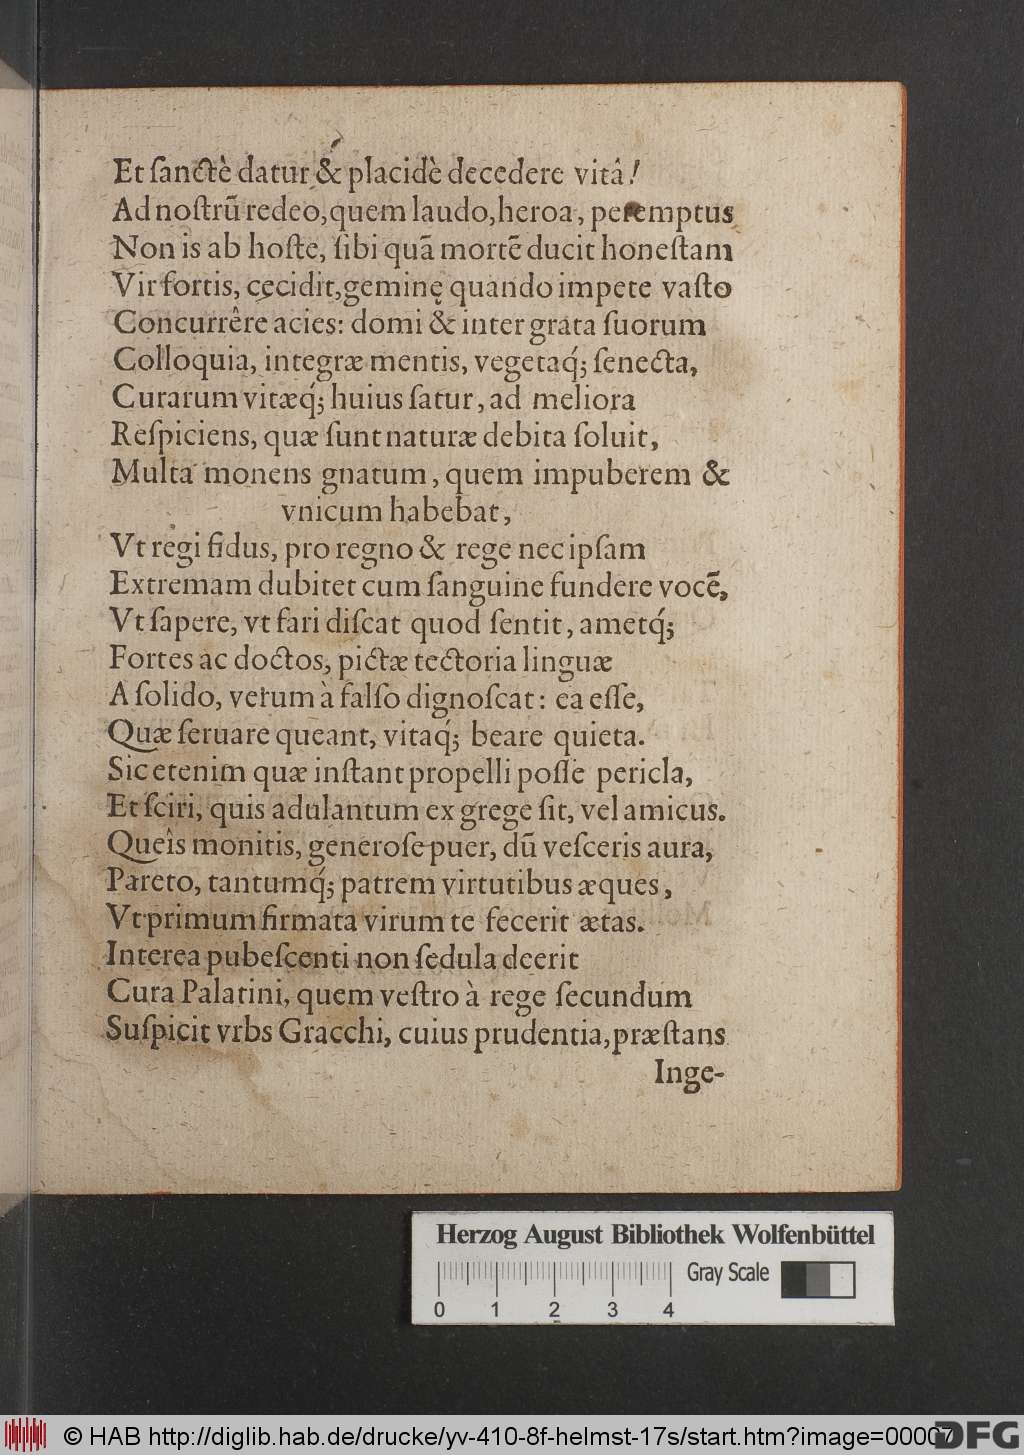 Et ſanctè datur & placidè decedere vitâ!
Ad noſtrũ redeo, quem laudo, heroa, peremptus
Non is ab hoſte, ſibi quã mortẽ ducit honeſtam
Vir fortis, cecidit, geminę quando impete vaſto
Concurrêre acies: domi & inter grata ſuorum
Colloquia, integræ mentis, vegetaq́; ſenecta,
Curarum vitæq́; huius ſatur, ad meliora
Reſpiciens, quæ ſunt naturæ debita ſoluit,
Multa monens gnatum, quem impuberem &
vnicum habebat,
Vt regi fidus, pro regno & rege nec ipſam
Extremam dubitet cum ſanguine fundere vocẽ,
Vt ſapere, vt fari diſcat quod ſentit, ametq́;
Fortes ac doctos, pictæ tectoria linguæ
A ſolido, verum à falſo dignoſcat: ea eſſe,
Quæ ſeruare queant, vitaq́; beare quieta.
Sic etenim quæ inſtant propelli poſſe pericla,
Et ſciri, quis adulantum ex grege ſit, vel amicus.
Queîs monitis, generoſe puer, dũ veſceris aura,
Pareto, tantumq́; patrem virtutibus æques,
Vt primum firmata virum te fecerit ætas.
Interea pubeſcenti non ſedula deerit
Cura Palatini, quem veſtro à rege ſecundum
Suſpicit vrbs Gracchi, cuius prudentia, præſtans
Inge-
Herzog August Bibliothek Wolfenbüttel
Gray Scale
0 1 2 3 4
© HAB http://diglib.hab.de/drucke/yv-410-8f-helmst-17s/start.htm?image=00007
DFG